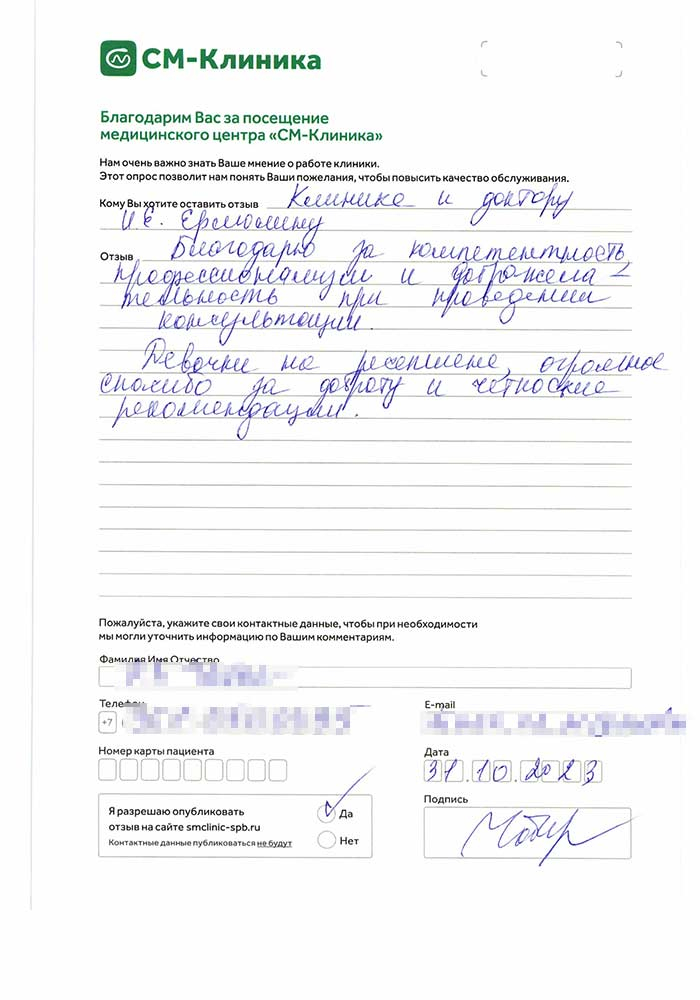 СМ-Клиника
Благодарим Вас за посещение
медицинского центра «СМ-Клиника»
Нам очень важно знать Ваше мнение о работе клиники.
Этот опрос позволит нам понять Ваши пожелания, чтобы повысить качество обслуживания.
Кому Вы хотите оставить отзыв Клинике и доктору
И.Е. Ермолину
Отзыв Благодарю за компетентность,
профессионализм и доброжела-
тельность при проведении
консультации.
Девочки на ресепшене, огромное
спасибо за доброту и четкие
рекомендации.
Пожалуйста, укажите свои контактные данные, чтобы при необходимости
мы могли уточнить информацию по Вашим комментариям.
Фамилия Имя Отчество
Телефон E-mail
+7
Номер карты пациента Дата
31.10.2023
Я разрешаю опубликовать
отзыв на сайте smclinic-spb.ru
Контактные данные публиковаться не будут
Да
Нет
Подпись